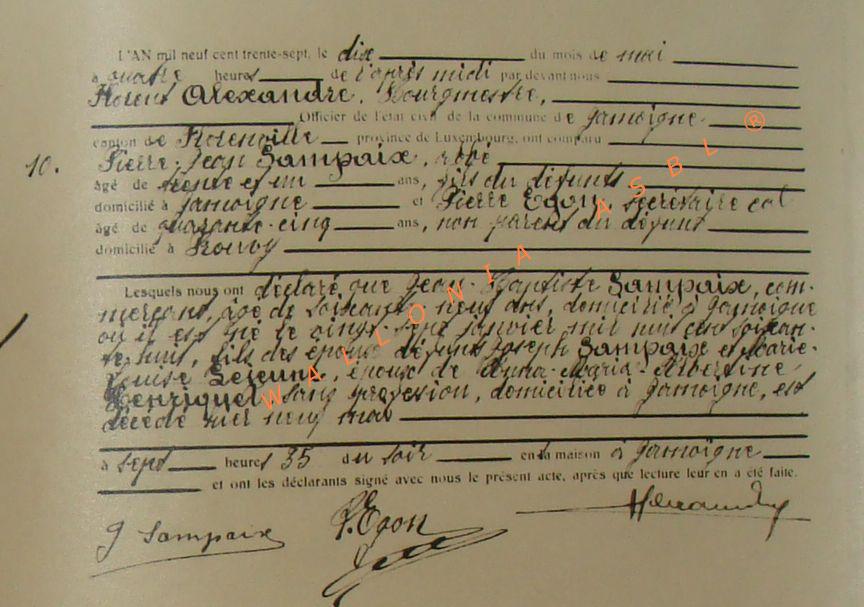 L'AN mil neuf cent trente-sept, le dix du mois de mai
à quatre heures de l'après midi par devant nous
Florent Alexandre, Bourgmestre,
Officier de l'état civil de la commune de Jamoigne
canton de Florenville province de Luxembourg, ont comparu
10. Pierre-Jean Sampaix,
âgé de trente et un ans, fils du défunt
domicilié à Jamoigne et Pierre Egon, secrétaire
âgé de quarante-cinq ans, non parent du défunt
domicilié à
Lesquels nous ont déclaré que Jean-Baptiste Sampaix, com-
merçant, âgé de soixante-neuf ans, domicilié à Jamoigne
où il est né le vingt-sept janvier mil huit cent soixan-
te-huit, fils des époux défunts Joseph Sampaix et Marie-
Louise Lejeune, époux de Anna-Maria-Albertine
Henriquet, sans profession, domiciliée à Jamoigne, est
décédé hier neuf mai
à sept heures 35 du soir en sa maison à Jamoigne
et ont les déclarants signé avec nous le présent acte, après que lecture leur en a été faite.
J Sampaix P. Egon
WALLONIA ASBL ®